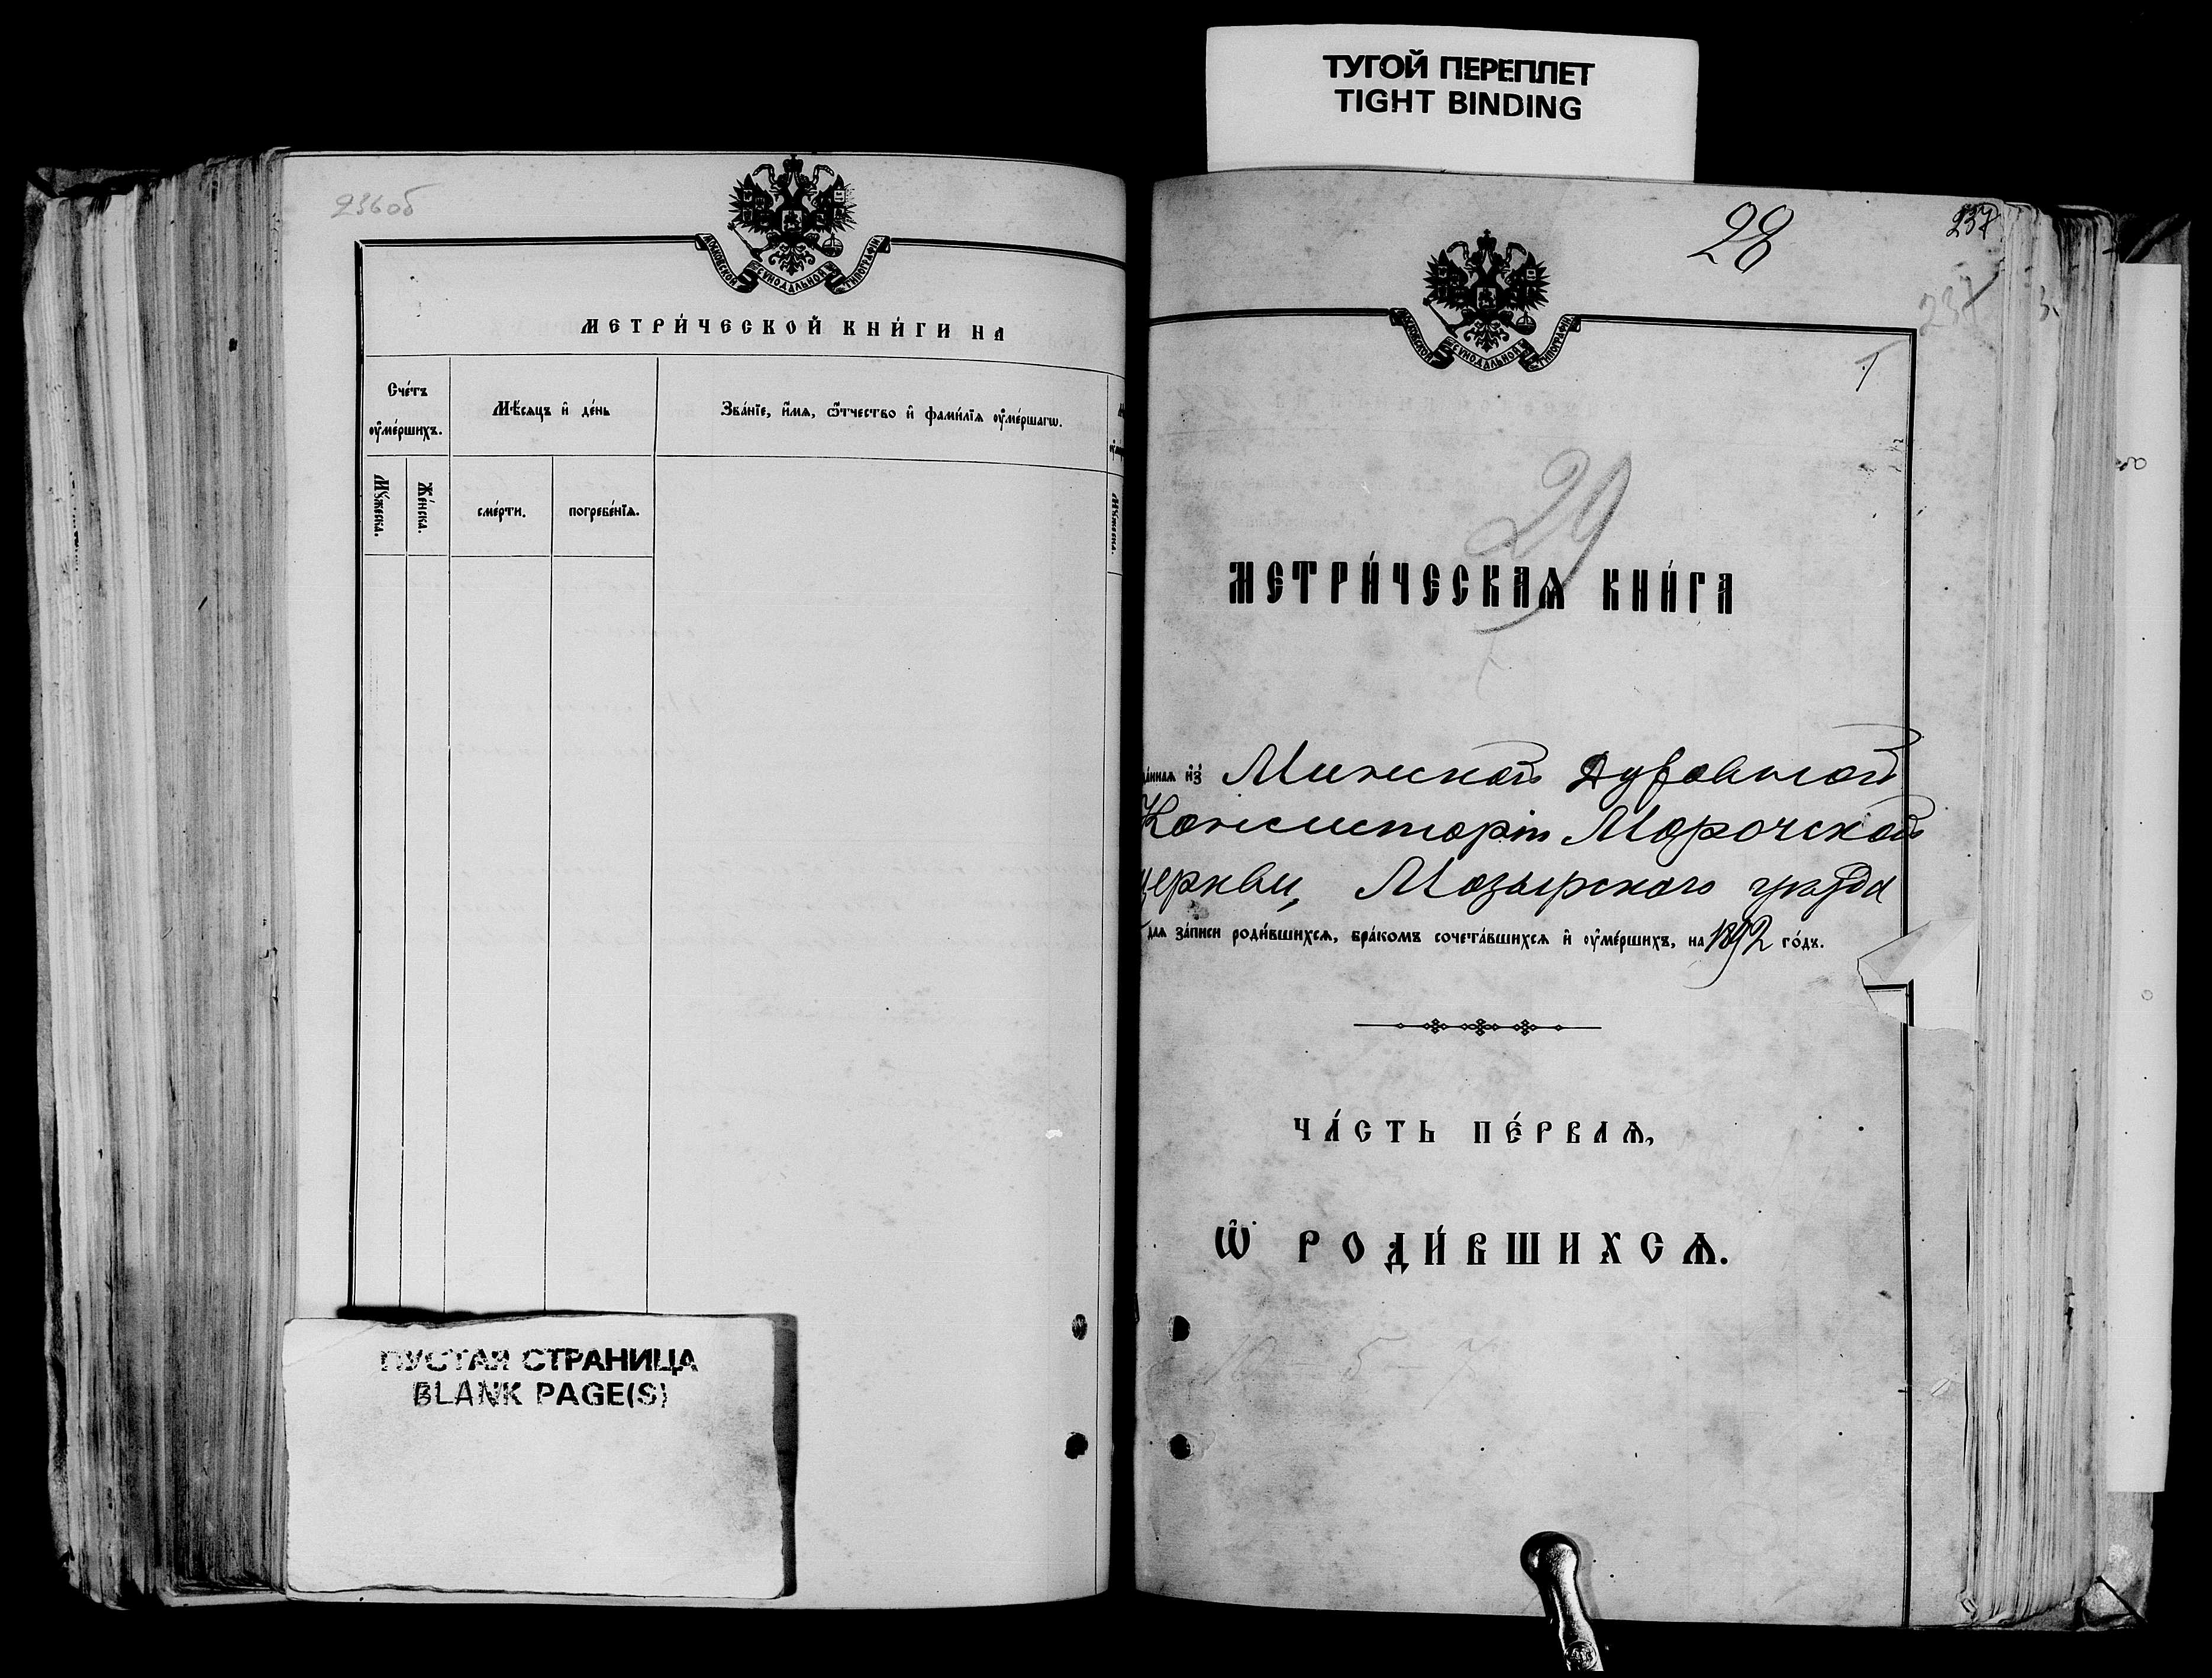 ТУГОЙ ПЕРЕПЛЕТ
TIGHT BINDING
236об
МОСКОВСКОЙ СѴНОДАЛЬНОЙ ТИПОГРАФІИ
МЕТРИ́ЧЕСКОЙ КНИ́ГИ НА
Сче́тъ оу҆ме́ршихъ.
Мѣ́сяцъ и҆ де́нь
Зва́нїе, и҆́мѧ, ѻ҆́тчество и҆ фами́лїѧ оу҆ме́ршагѡ.
Мꙋ́жеска.
Же́нска.
сме́рти.
погребе́нїѧ.
ПУСТАЯ СТРАНИЦА
BLANK PAGE(S)
28
237
237
МОСКОВСКОЙ СѴНОДАЛЬНОЙ ТИПОГРАФІИ
29
МЕТРИ́ЧЕСКАѦ КНИ́ГА
да́нная и҆з̾ Минской Духовной
Консисторіи Морочской
церкви, Мозырского уѣзда
для за́писи роди́вшихсѧ, бра́комъ сочета́вшихсѧ и҆ оу҆ме́ршихъ, на 1892 го́дъ.
ЧА́СТЬ ПЕ́РВАѦ,
Ѡ҆ РОДИ́ВШИХСѦ.